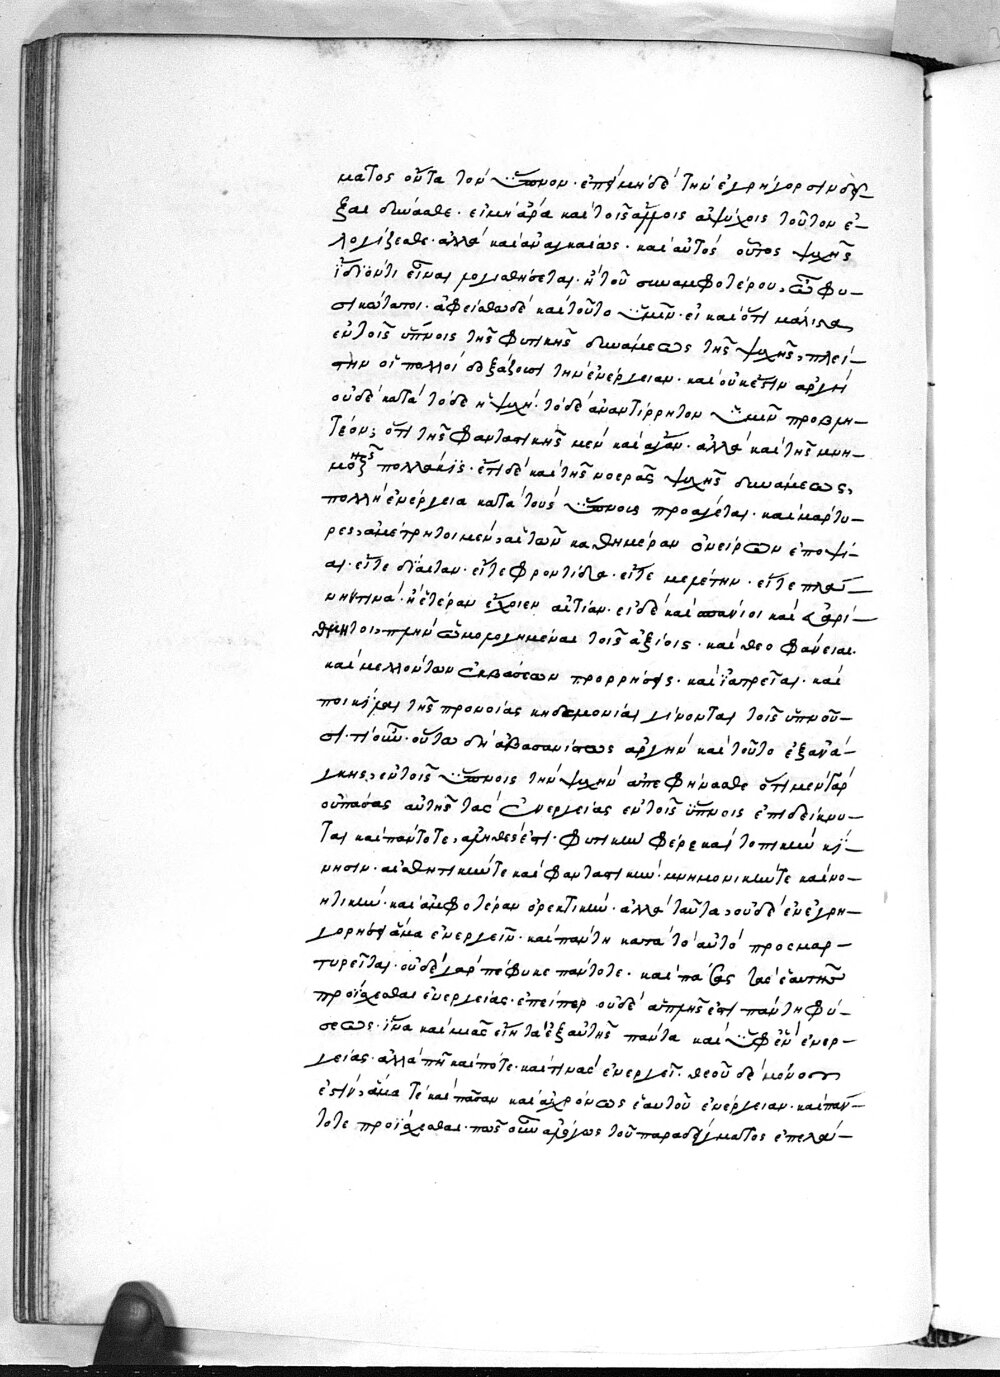 ματος ὄντα τὸν ὕπνον· ἐπεὶ μηδὲ τὴν ἐγρήγορσιν δεῖ-
ξαι δύνασθε· εἰ μὴ ἄρα καὶ τοῖς ἀψύχοις τοῦτον ἐ-
λογίζεσθε· ἀλλὰ καὶ ἀναγκαίως· καὶ αὐτὸς οὗτος ψυχῆς
ἴδιόν τι εἶναι λογισθήσεται· ἢ τοῦ συναμφοτέρου, ὦ φυ-
σικώτατοι· ἀφείσθω δὲ καὶ τοῦτο ὑμῖν· εἰ καὶ ὅτι μάλιστα
ἐν τοῖς ὕπνοις τῆς φυτικῆς δυνάμεως τῆς ψυχῆς, πλεί-
την οἱ πολλοὶ δοξάζουσι τὴν ἐνέργειαν· καὶ οὐκ ἔστιν ἀργὴ
οὐδὲ κατὰ τόδε ἡ ψυχή· τόδε ἀναντίρρητον ὑμῖν προβλη-
τέον, ὅτι τῆς φανταστικῆς μὲν καὶ ἄγαν· ἀλλὰ καὶ τῆς μνη-
μονικῆς πολλάκις· ἔτι δὲ καὶ τῆς νοερᾶς ψυχῆς δυνάμεως,
πολλὴ ἐνέργεια κατὰ τοὺς ὕπνους προάγεται· καὶ μάρτυ-
ρες, ἀμέτρητοι μὲν, αἱ τῶν καθημέραν ὀνείρων ἐπόψει-
αι· εἴτε δίαιταν· εἴτε φροντίδα· εἴτε μελέτην· εἴτε πλα-
νητινα· ἢ ἑτέραν ἔχοιεν αἰτίαν· εἰ δὲ καὶ σπάνιοι καὶ εὐαρί-
θμητοι, πλὴν ὡμολογημέναι τοῖς ἀξίοις· καὶ θεοφάνειαι
καὶ μελλόντων ἐκβάσεων προρρήσεις· καὶ ἰατρεῖαι· καὶ
ποικίλαι τῆς προνοίας κηδεμονίαι γίνονται τοῖς ὑπνοῦ-
σι· τί οὖν· οὕτω δὴ ἀβασανίστως ἀργὴν καὶ τοῦτο ἐξανά-
γκης, ἐν τοῖς ὕπνοις τὴν ψυχὴν ἀπεφήνασθε· ὅτι μὲν γὰρ
οὐ πάσας αὐτῆς τὰς ἐνεργείας ἐν τοῖς ὕπνοις ἐπιδείκνυ-
ται καὶ πάντοτε, ἀληθές ἐστι· φυτικὴν φέρε καὶ τοπικὴν κί-
νησιν· αἰσθητικήν τε καὶ φανταστικήν· μνημονικήν τε καὶ νο-
ητικήν· καὶ ἀμφοτέραν ὀρεκτικήν· ἀλλὰ ταῦτα, οὐδὲ ἐν ἐγρη-
γόρησει ἅμα ἐνεργεῖν· καὶ πάντη κατὰ τὸ αὐτὸ προσμαρ-
τυρεῖται· οὐδὲ γὰρ πέφυκε πάντοτε· καὶ πάσας τὰς ἑαυτῆς
προΐσχεσθαι ἐνεργείας· ἐπείπερ οὐδὲ ἁπλῆς ἐστὶ πάντη φύ-
σεως· ἵνα καὶ μιᾶς εἴη τὰ ἐξ αὐτῆς πάντα καὶ ὑφ' ἓν ἐνερ-
γείας· ἀλλὰ πῆ καὶ ποτὲ· καὶ τινὰς ἐνεργεῖ· θεοῦ δὲ μόνου
ἐστὶν, ἅμα τὲ καὶ πᾶσαν καὶ ἀχρόνως ἑαυτοῦ ἐνέργειαν· καὶ πάν-
τοτε προΐσχεσθαι· πῶς οὖν ἀλόγως τοῦ παραδείγματος ἐπελαύ-